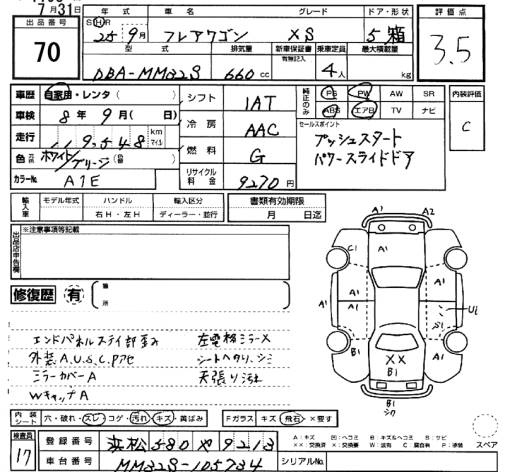 7月31日
出品番号 年式 車名 グレード ドア・形状 評価点
70
S(H)R 25年9月 フレアワゴン XS 5 箱 3.5
型式 排気量 新車保証書 乗車定員 最大積載量
有無記入
DBA-MM32S 660cc 4人 kg
車歴 自家用・レンタ( )
シフト 1AT
純正のみ PS PW AW SR
ABS エアB TV ナビ
内装評価 C
車検 8年9月(日)
冷房 AAC
セールスポイント
プッシュスタート
パワースライドドア
走行 119,548 km マイル
燃料 G
色 ホワイト/
カラーNo. A1E
リサイクル料金 9270円
輸入車 モデル年式 ハンドル 輸入区分 書類有効期限
右H・左H ディーラー・並行 月 日迄
出品店申告欄 ※注意事項等記載
修復歴 有 ( 箇所 )
エンドパネルステイ部歪み 左電格ミラーX
外装A.U.S.C.Pアセ シートヘタリ、シミ
ミラーカバーA 天張り汚れ
WキャッチA
A1 A2
C1 A1
A1 A1 A1 U1
A1 S1
XX
B1 B1
B1
内装シート 穴・破れ・スレ コゲ・汚れ・キズ・黄ばみ Fガラス キズ・飛石・×要す
A:キズ 凹:ヘコミ B:キズ&ヘコミ S:サビ
スペア
検査員 17
登録番号 浜松 580 や 9213
車台番号 MM32S-105734 シリアルNo.